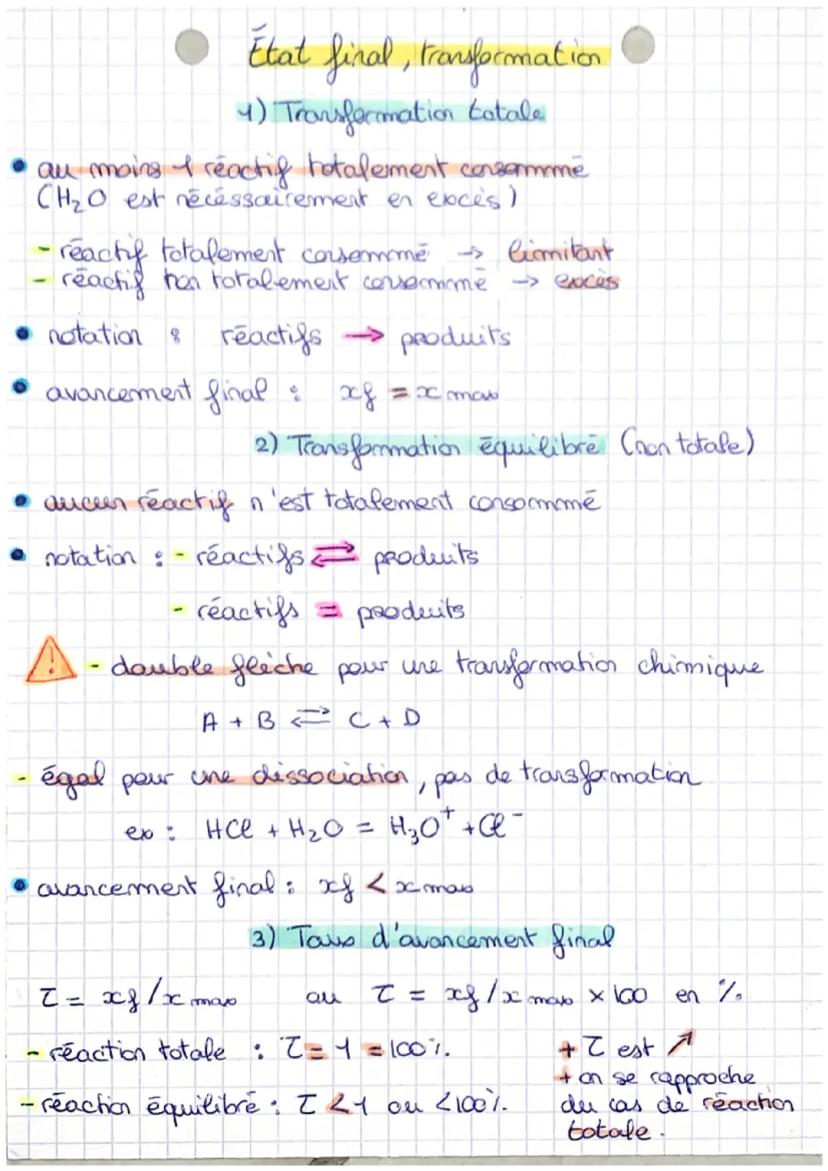 État final, transformation
1) Transformation totale
• au moins 1 réactif totalement consommé
(H₂O est nécéssairement en excès)
- réactif totalement consommé → limitant
- réactif non totalement consommé → excès
• notation : réactifs → produits
• avancement final : xf = x max
2) Transformation équilibré (non totale)
• aucun réactif n'est totalement consommé
• notation : - réactifs ⇄ produits
- réactifs = produits
⚠ - double flèche pour une transformation chimique
A + B ⇄ C + D
- égal pour une dissociation, pas de transformation
ex : HCl + H₂O = H₃O⁺ + Cl⁻
• avancement final : xf < x max
3) Taux d'avancement final
τ = xf / x max ou τ = xf / x max × 100 en %.
- réaction totale : τ = 1 = 100 %.
+ τ est ↗
+ on se rapproche
- réaction équilibré : τ < 1 ou < 100 %.
du cas de réaction
totale.